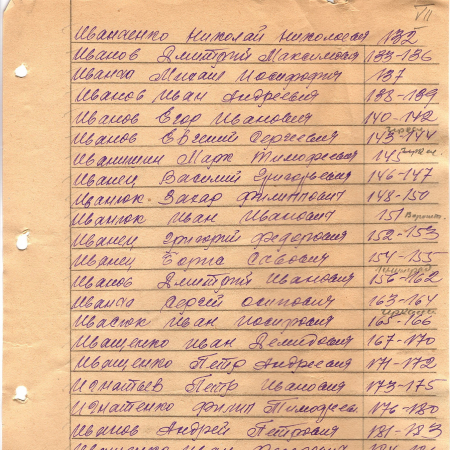 VII
Иванченко Николай Николаевич 132
Иванов Дмитрий Максимович 133-136
Иванча Михаил Иосифович 137
Иванов Иван Андреевич 138-139
Иванов Егор Иванович 140-142
Иванов Евгений Сергеевич 143-144
Иванишин Марк Тимофеевич 145
Иванец Василий Григорьевич 146-147
Иванюк Захар Филиппович 148-150
Иванюк Иван Иванович 151
Иванец Григорий Федорович 152-153
Иванец Савович 154-155
Иванов Дмитрий Иванович 156-162
Иванча Сергей Осипович 163-164
Ивасюк Иван Иосифович 165-166
Иващенко Иван Демидович 167-170
Иващенко Петр Андреевич 171-172
Игнатьев Петр Иванович 173-175
Игнатенко Филип Тимофеевич 176-180
Иванов Андрей Петрович 181-183
Иван